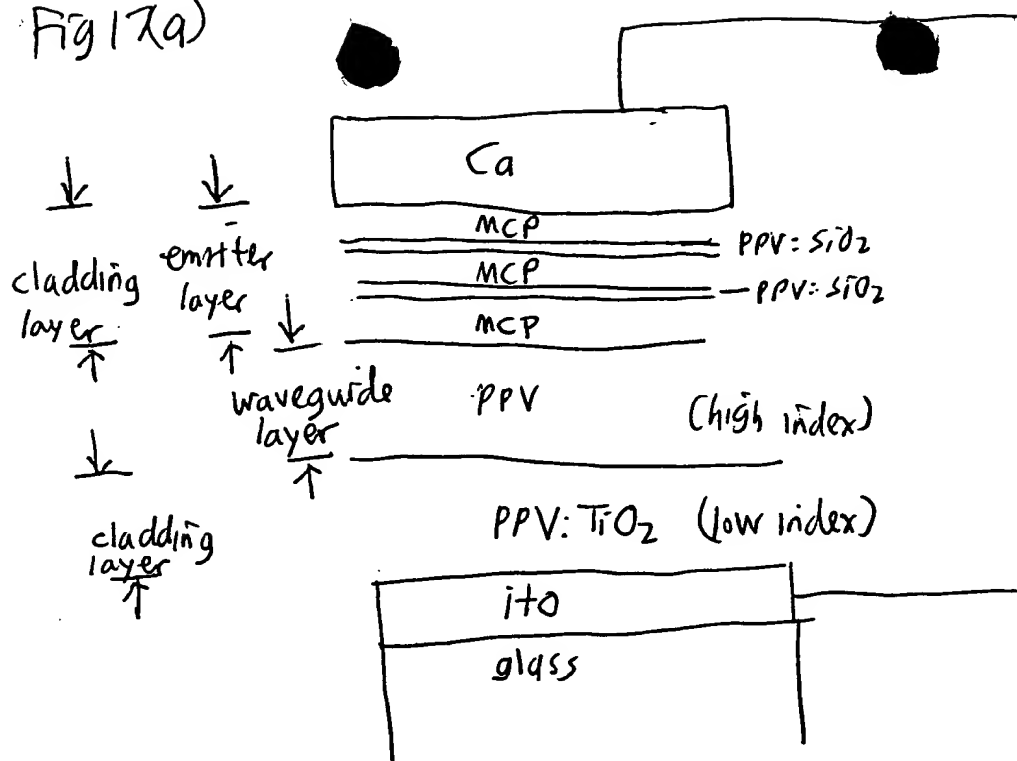 Fig 17(a)
Ca
MCP
PPV: SiO2
MCP
PPV: SiO2
MCP
cladding
layer
emitter
layer
waveguide
layer
PPV
(high index)
PPV: TiO2 (low index)
cladding
layer
ito
glass